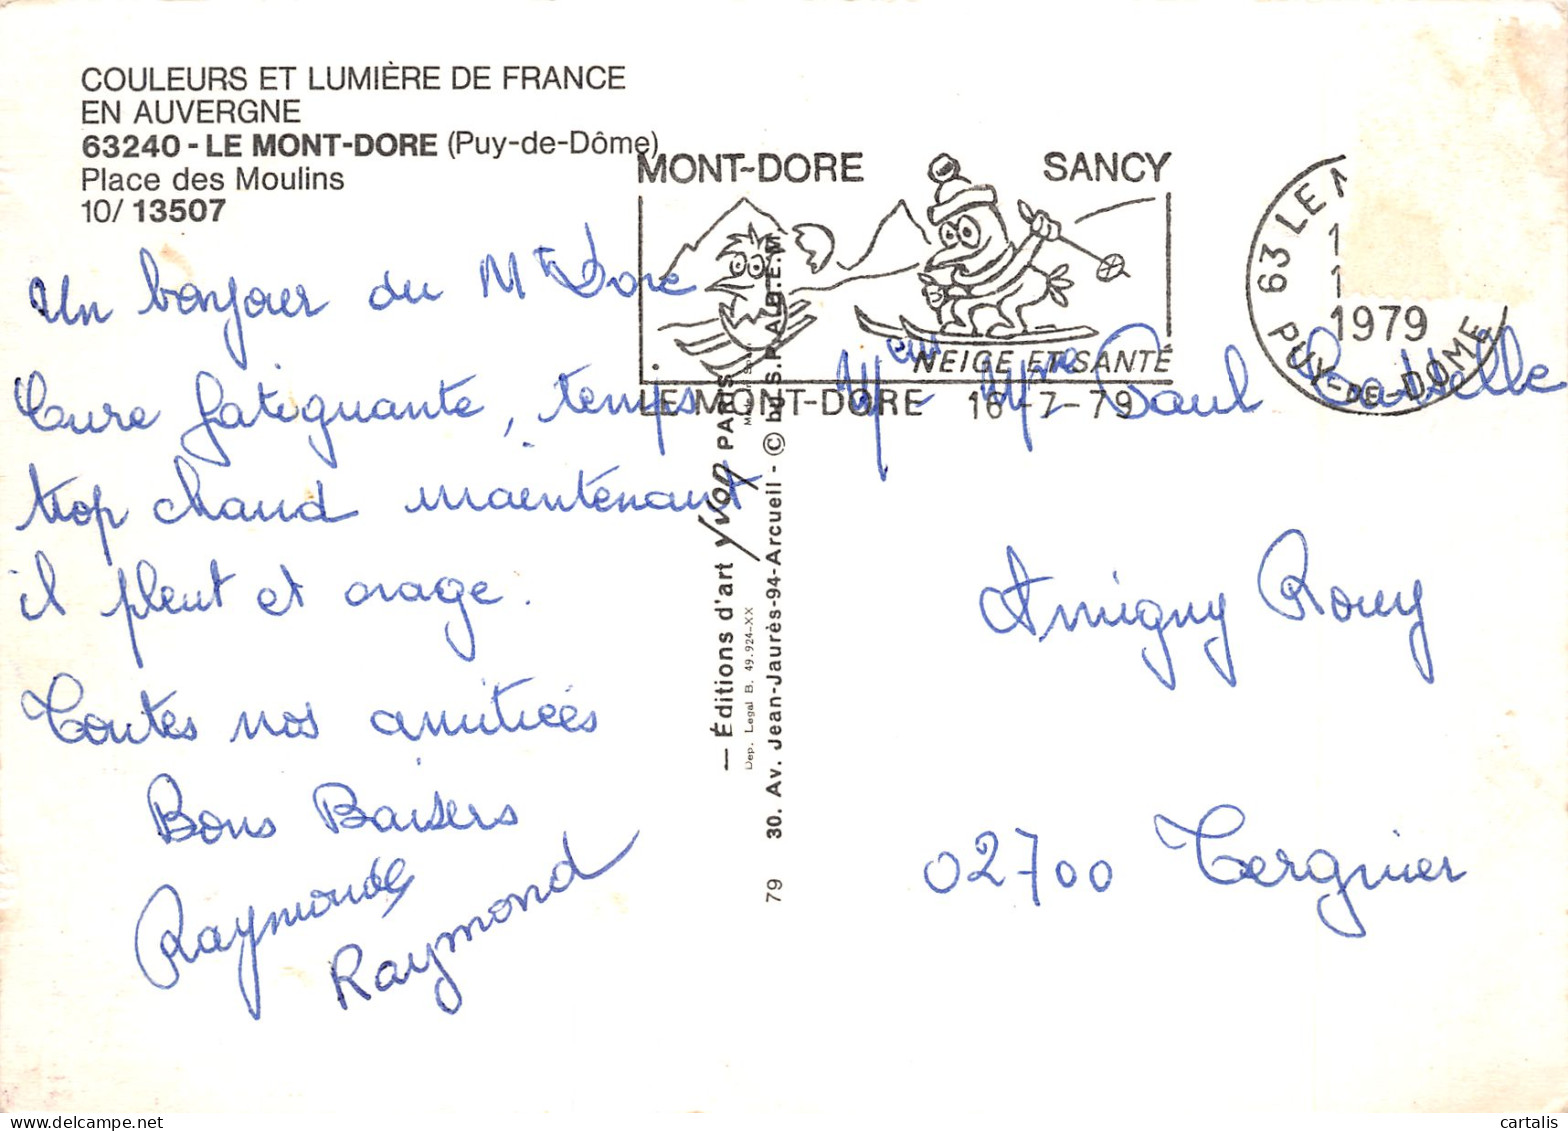 COULEURS ET LUMIÈRE DE FRANCE
EN AUVERGNE
63240 - LE MONT-DORE (Puy-de-Dôme)
Place des Moulins
10/ 13507
MONT-DORE SANCY
NEIGE ET SANTÉ
LE MONT-DORE 16-7-79
63 LE M
1979
PUY-DE-DOME
Un bonjour du Mt Dore
Cure fatiguante, temps
trop chaud maintenant
il pleut et orage.
Toutes nos amitiées
Bons Baisers
Raymonde
Raymond
— Éditions d'art Yvon PARIS
Dep. Legal B. 49.924-XX
30. Av. Jean-Jaurès-94-Arcueil - © by S.P.A.D.E.M
79
Meur Mme Paul
Amigny Rouy
02700 Tergnier
cartalis